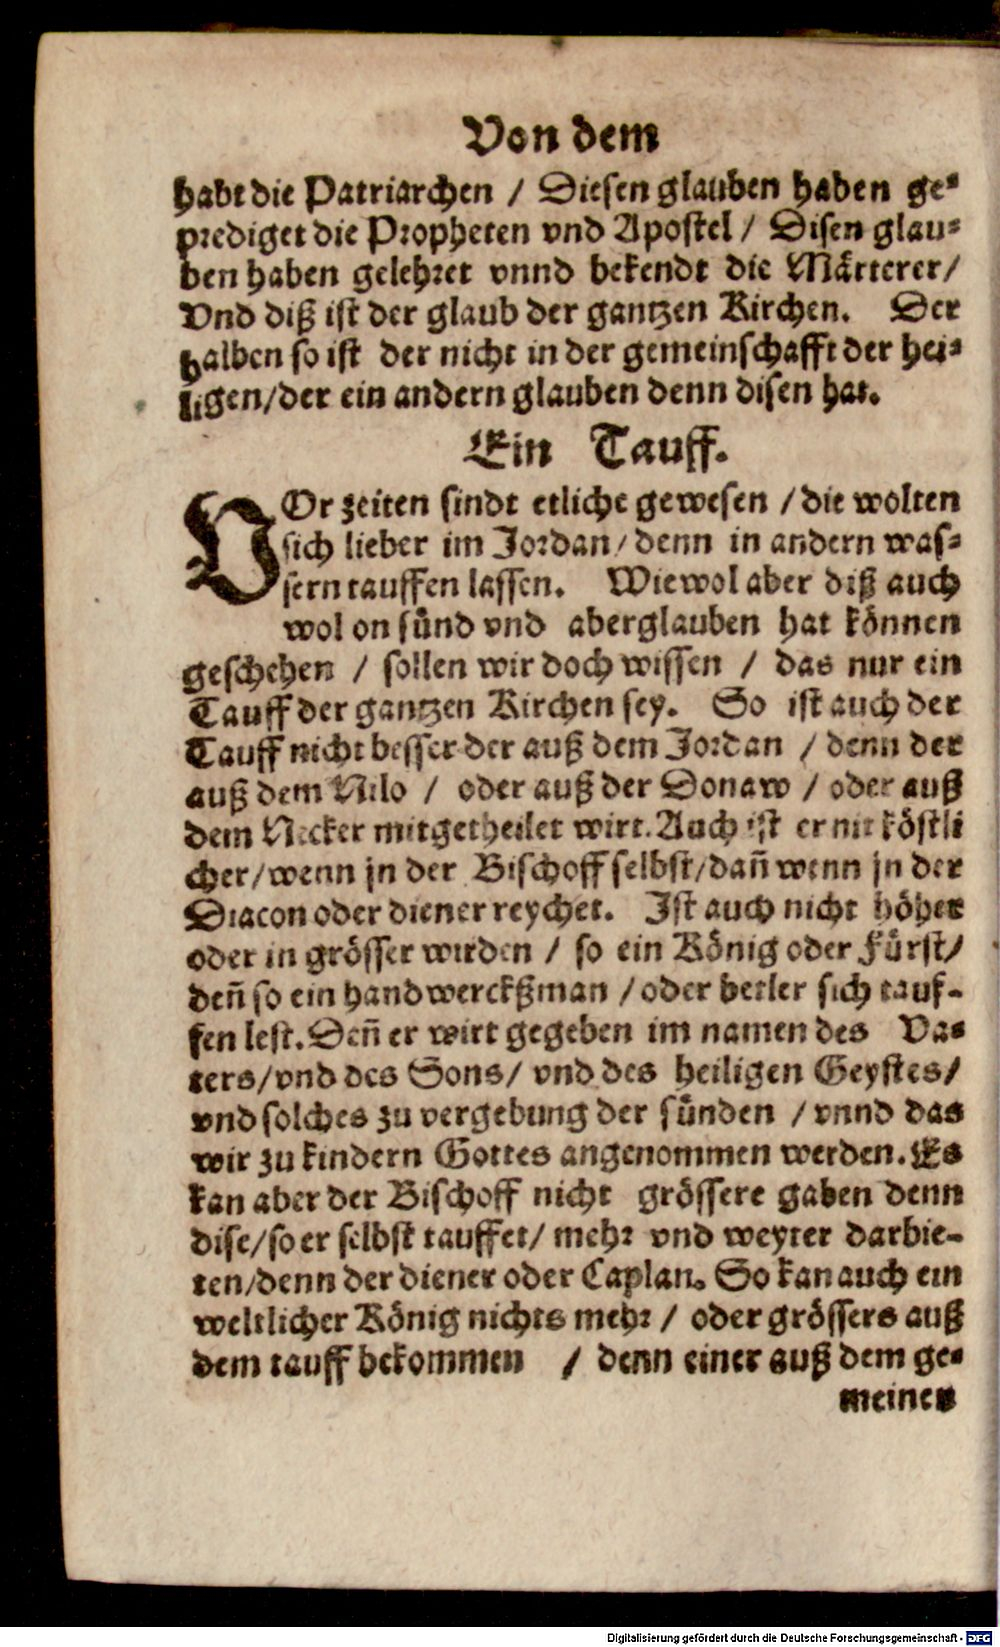 Von dem
habt die Patriarchen / Diesen glauben haben ge-
prediget die Propheten vnd Apostel / Disen glau-
ben haben gelehret vnnd bekendt die Märterer/
Vnd diß ist der glaub der gantzen Kirchen. Der
halben so ist der nicht in der gemeinschafft der hei-
ligen/der ein andern glauben denn disen hat.
Ein Tauff.
VOr zeiten sindt etliche gewesen / die wolten
sich lieber im Jordan/ denn in andern was-
sern tauffen lassen. Wiewol aber diß auch
wol on sünd vnd aberglauben hat können
geschehen / sollen wir doch wissen / das nur ein
Tauff der gantzen Kirchen sey. So ist auch der
Tauff nicht besser der auß dem Jordan / denn der
auß dem Nilo / oder auß der Donaw / oder auß
dem Necker mitgetheilet wirt. Auch ist er nit köstli
cher/wenn jn der Bischoff selbst/dañ wenn jn der
Diacon oder diener reychet. Ist auch nicht höher
oder in grösser wirden / so ein König oder Fürst/
deñ so ein handwerckßman / oder betler sich tauf-
fen lest. Deñ er wirt gegeben im namen des Va-
ters/vnd des Sons/ vnd des heiligen Geystes/
vnd solches zu vergebung der sünden / vnnd das
wir zu kindern Gottes angenommen werden. Es
kan aber der Bischoff nicht grössere gaben denn
dise/so er selbst tauffet/ mehr vnd weyter darbie-
ten/denn der diener oder Caplan. So kan auch ein
weltlicher König nichts mehr / oder grössers auß
dem tauff bekommen / denn einer auß dem ge-
meinen
Digitalisierung gefördert durch die Deutsche Forschungsgemeinschaft - DFG